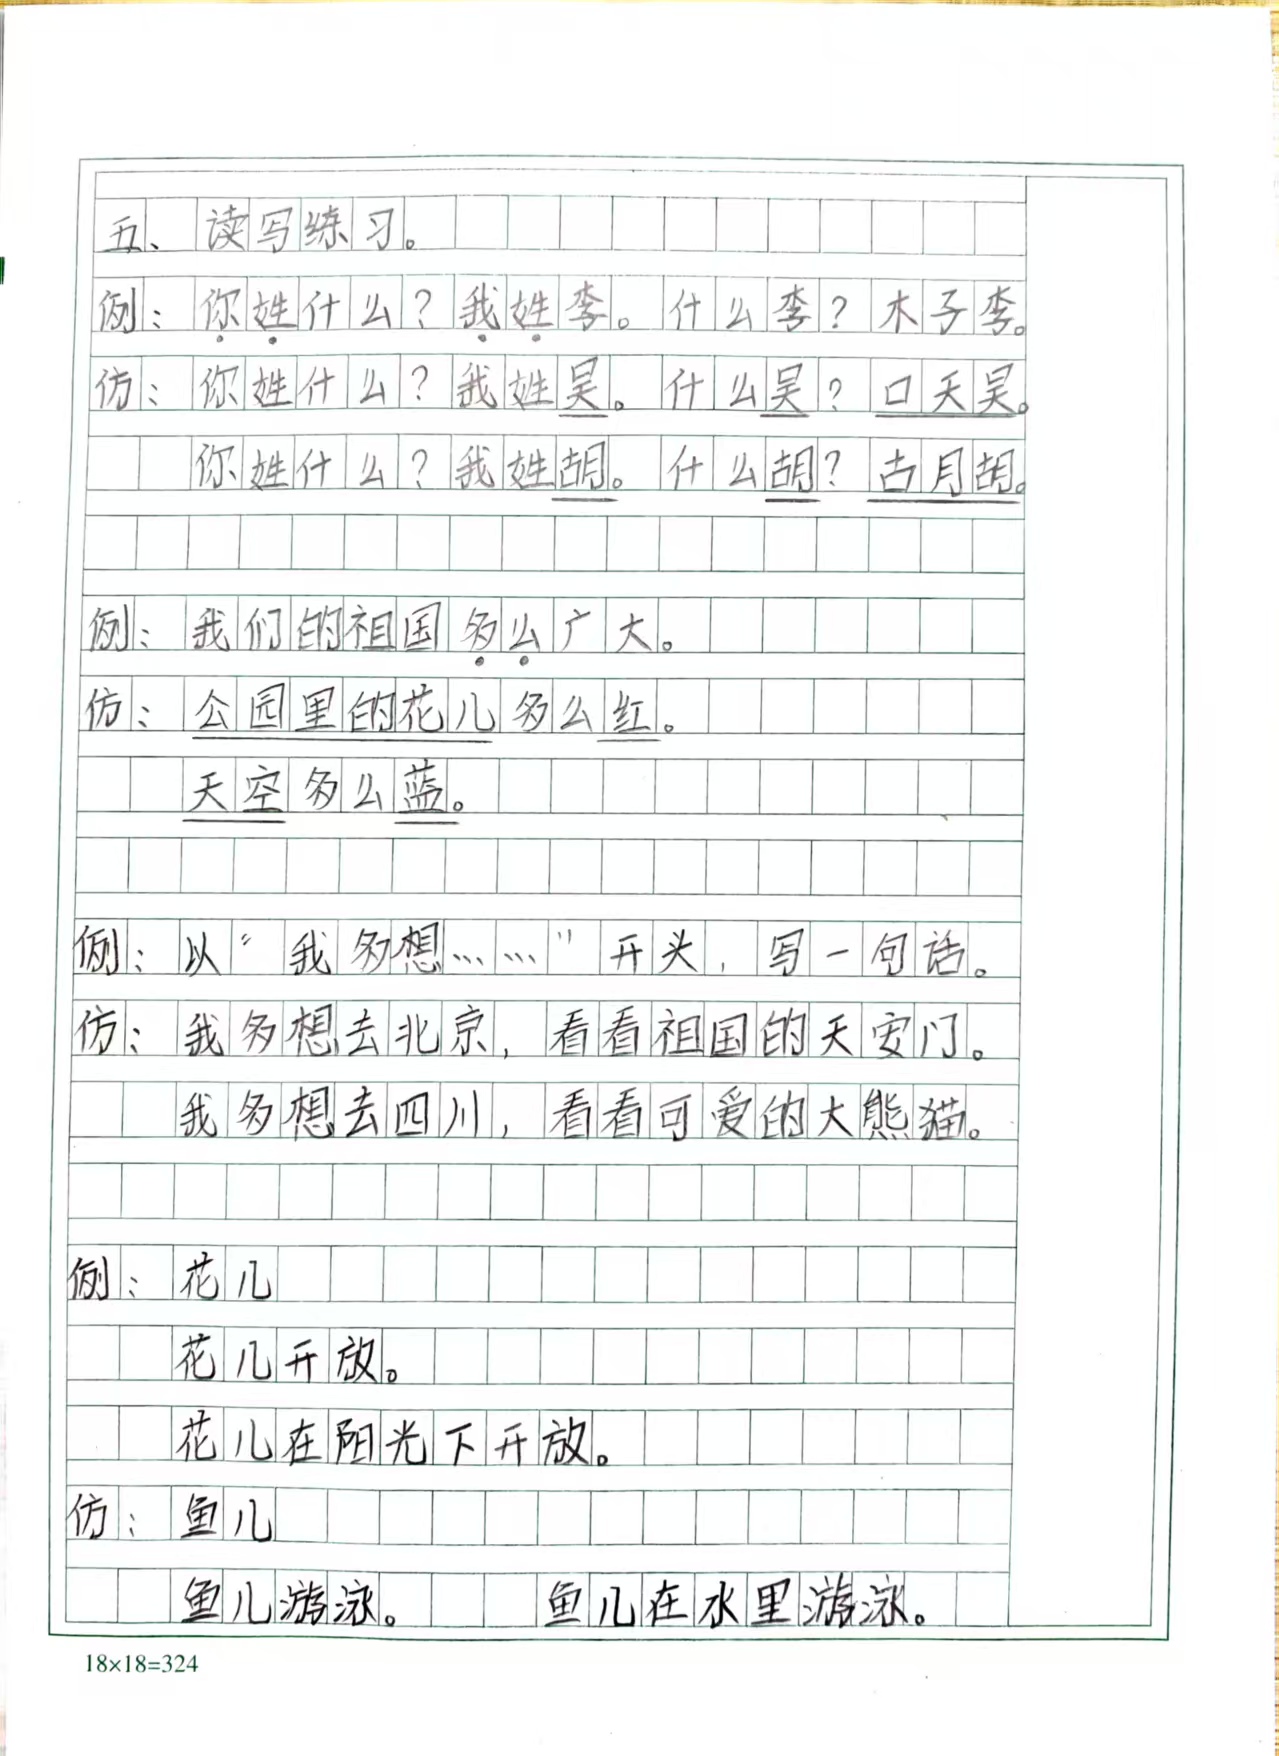 五、读写练习。
例：你姓什么？我姓李。什么李？木子李。
仿：你姓什么？我姓吴。什么吴？口天吴。
你姓什么？我姓胡。什么胡？古月胡。
例：我们的祖国多么广大。
仿：公园里的花儿多么红。
天空多么蓝。
例：以“我多想……”开头，写一句话。
仿：我多想去北京，看看祖国的天安门。
我多想去四川，看看可爱的大熊猫。
例：花儿
花儿开放。
花儿在阳光下开放。
仿：鱼儿
鱼儿游泳。 鱼儿在水里游泳。
18×18=324